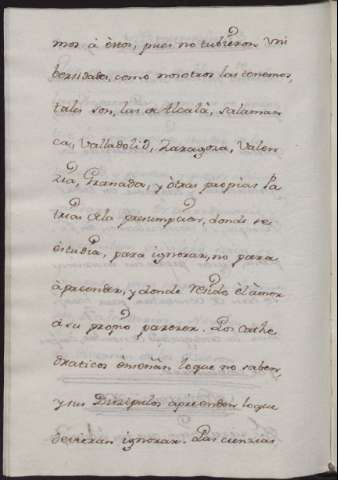 mos à èstos, pues no tubieron Uni
bersidades, como nosotros las tenemos,
tales son, las de Alcalà, Salaman
ca, Valladolid, Zaragoza, Valen
zia, Granada, y òtras propias Pa
trias de la presumpcion, donde se
èstudia, para ignorar, no para
àprender, y donde reside èl àmor
à su propio parezer. Los Cathe
draticos ènseñan loque no saben,
y sus Diszipulos aprenden loque
devieran ignorar. Las cienzias